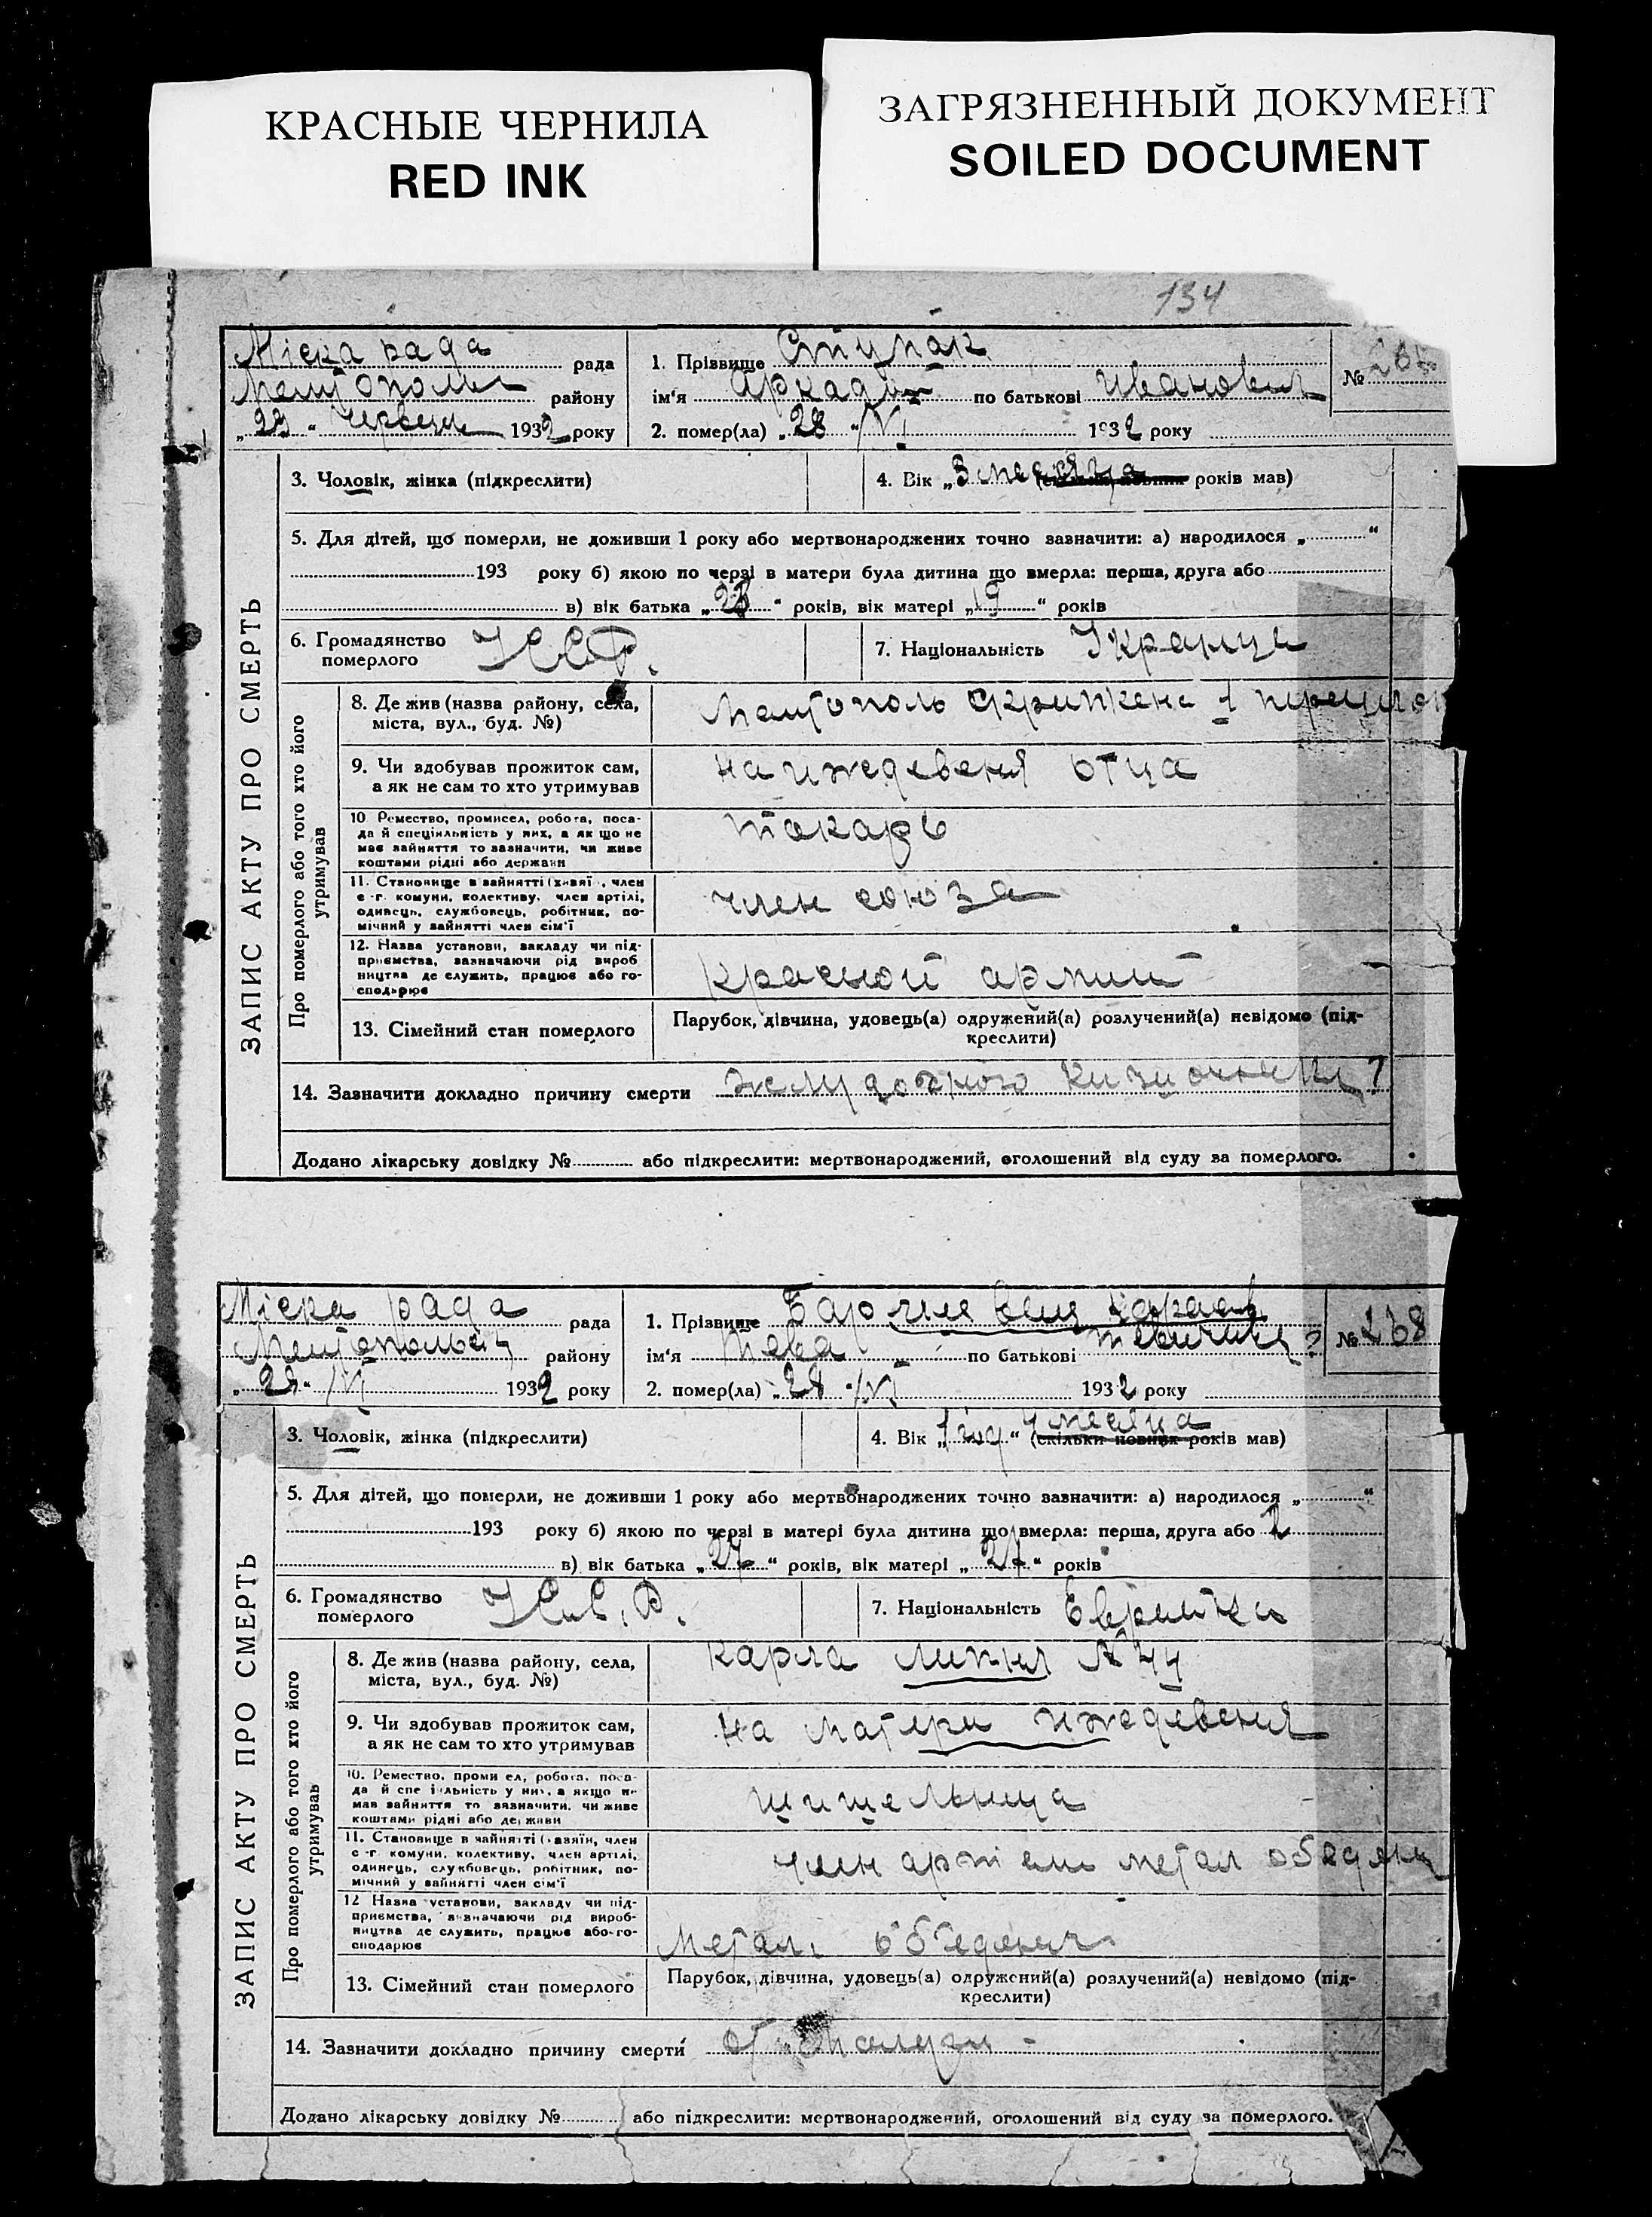 КРАСНЫЕ ЧЕРНИЛА
RED INK
ЗАГРЯЗНЕННЫЙ ДОКУМЕНТ
SOILED DOCUMENT
134
Міска рада рада
району
„29“ Червень 1932 року
1. Прізвище Ступак
ім'я Аркадий по батькові Иванович
2. помер(ла) „28“ /VI 1932 року
№
ЗАПИС АКТУ ПРО СМЕРТЬ
3. Чоловік, жінка (підкреслити)
4. Вік „3 месяца років мав)
5. Для дітей, що померли, не доживши 1 року або мертвонароджених точно зазначити: а) народилося „ “
193 року б) якою по черзі в матери була дитина що вмерла: перша, друга або
в) вік батька „ “ років, вік матері „19“ років
6. Громадянство померлого УССР.
7. Національність
Про померлого або того хто його утримував
8. Де жив (назва району, села,
міста, вул., буд. №)
9. Чи здобував прожиток сам,
а як не сам то хто утримував
на иждевения отца
10 Ремество, промисел, робота, поса-
да й спеціяльність у них, а як що не
має зайняття то зазначити, чи живе
коштами рідні або держави
токарь
11. Становище в зайнятті (хазяї , член
с -г. комуни, колективу, член артілі,
одинець, службовець, робітник, по-
мічний у зайнятті член сім'ї
член союза
12. Назва установи, закладу чи під-
приємства, зазначаючи рід вироб
ництва де служить, працює або го-
сподарює
Красной армии
13. Сімейний стан померлого
Парубок, дівчина, удовець(а) одружений(а) розлучений(а) невідомо (під-
креслити)
14. Зазначити докладно причину смерти
Додано лікарську довідку № або підкреслити: мертвонароджений, оголошений від суду за померлого.
Міска рада рада
району
„29“ /VI 1932 року
1. Прізвище
ім'я по батькові
2. помер(ла) „28“ /VI 1932 року
№ 268
ЗАПИС АКТУ ПРО СМЕРТЬ
3. Чоловік, жінка (підкреслити)
4. Вік „1 год“ месяца (скільки повних років мав)
5. Для дітей, що померли, не доживши 1 року або мертвонароджених точно зазначити: а) народилося „ “
193 року б) якою по черзі в матері була дитина що вмерла: перша, друга або 2
в) вік батька „27“ років, вік матері „27“ років
6. Громадянство померлого У.С.С.Р.
7. Національність
Про померлого або того хто його утримував
8. Де жив (назва району, села,
міста, вул., буд. №)
Карла № 44
9. Чи здобував прожиток сам,
а як не сам то хто утримував
На матери иждевения
10. Ремество, проми ел, робота, поса-
да й спе і льність у них, а якщо не
має зайняття то зазначити, чи живе
коштами рідні або держави
11. Становище в зайнятті ( азяїн, член
с -г комуни, колективу, член артілі,
одинець, службовець, робітник, по-
мічний у зайнятті член сім'ї
член артели метал
12 Назва установи, закладу чи під-
приємства, зазначаючи рід вироб-
ництва де служить, працює або го-
сподарює
Метал
13. Сімейний стан померлого
Парубок, дівчина, удовець(а) одружений(а) розлучений(а) невідомо (під-
креслити)
14. Зазначити докладно причину смерти
Додано лікарську довідку № або підкреслити: мертвонароджений, оголошений від суду за померлого.